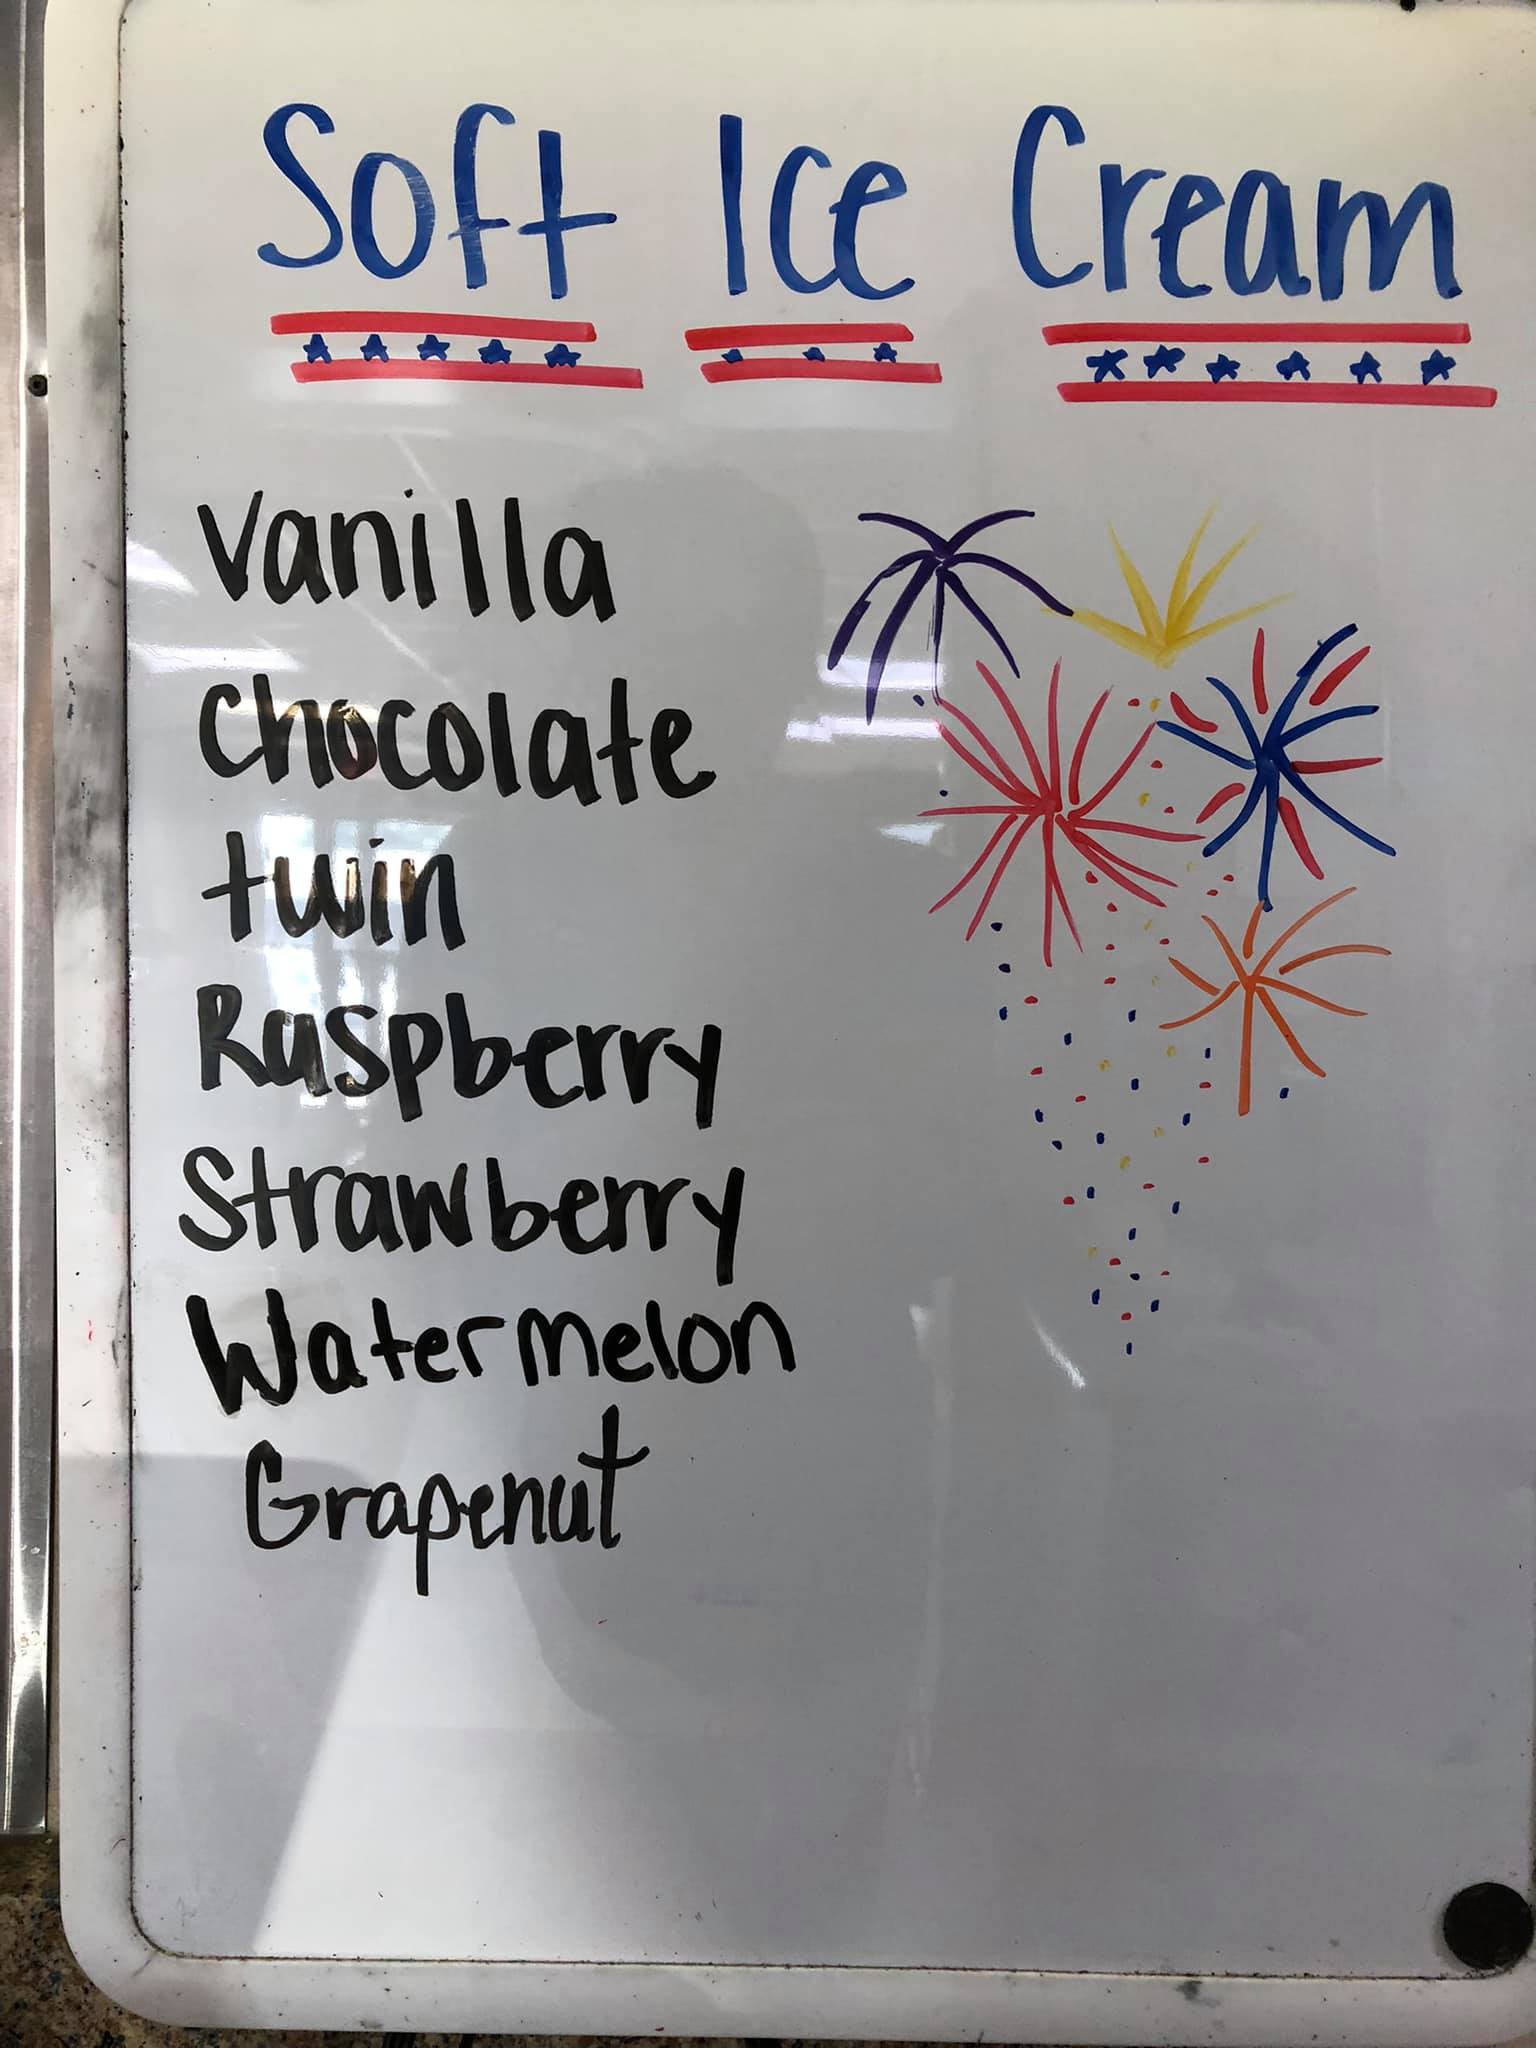 Soft Ice Cream
Vanilla
chocolate
twin
Raspberry
Strawberry
Watermelon
Grapenut